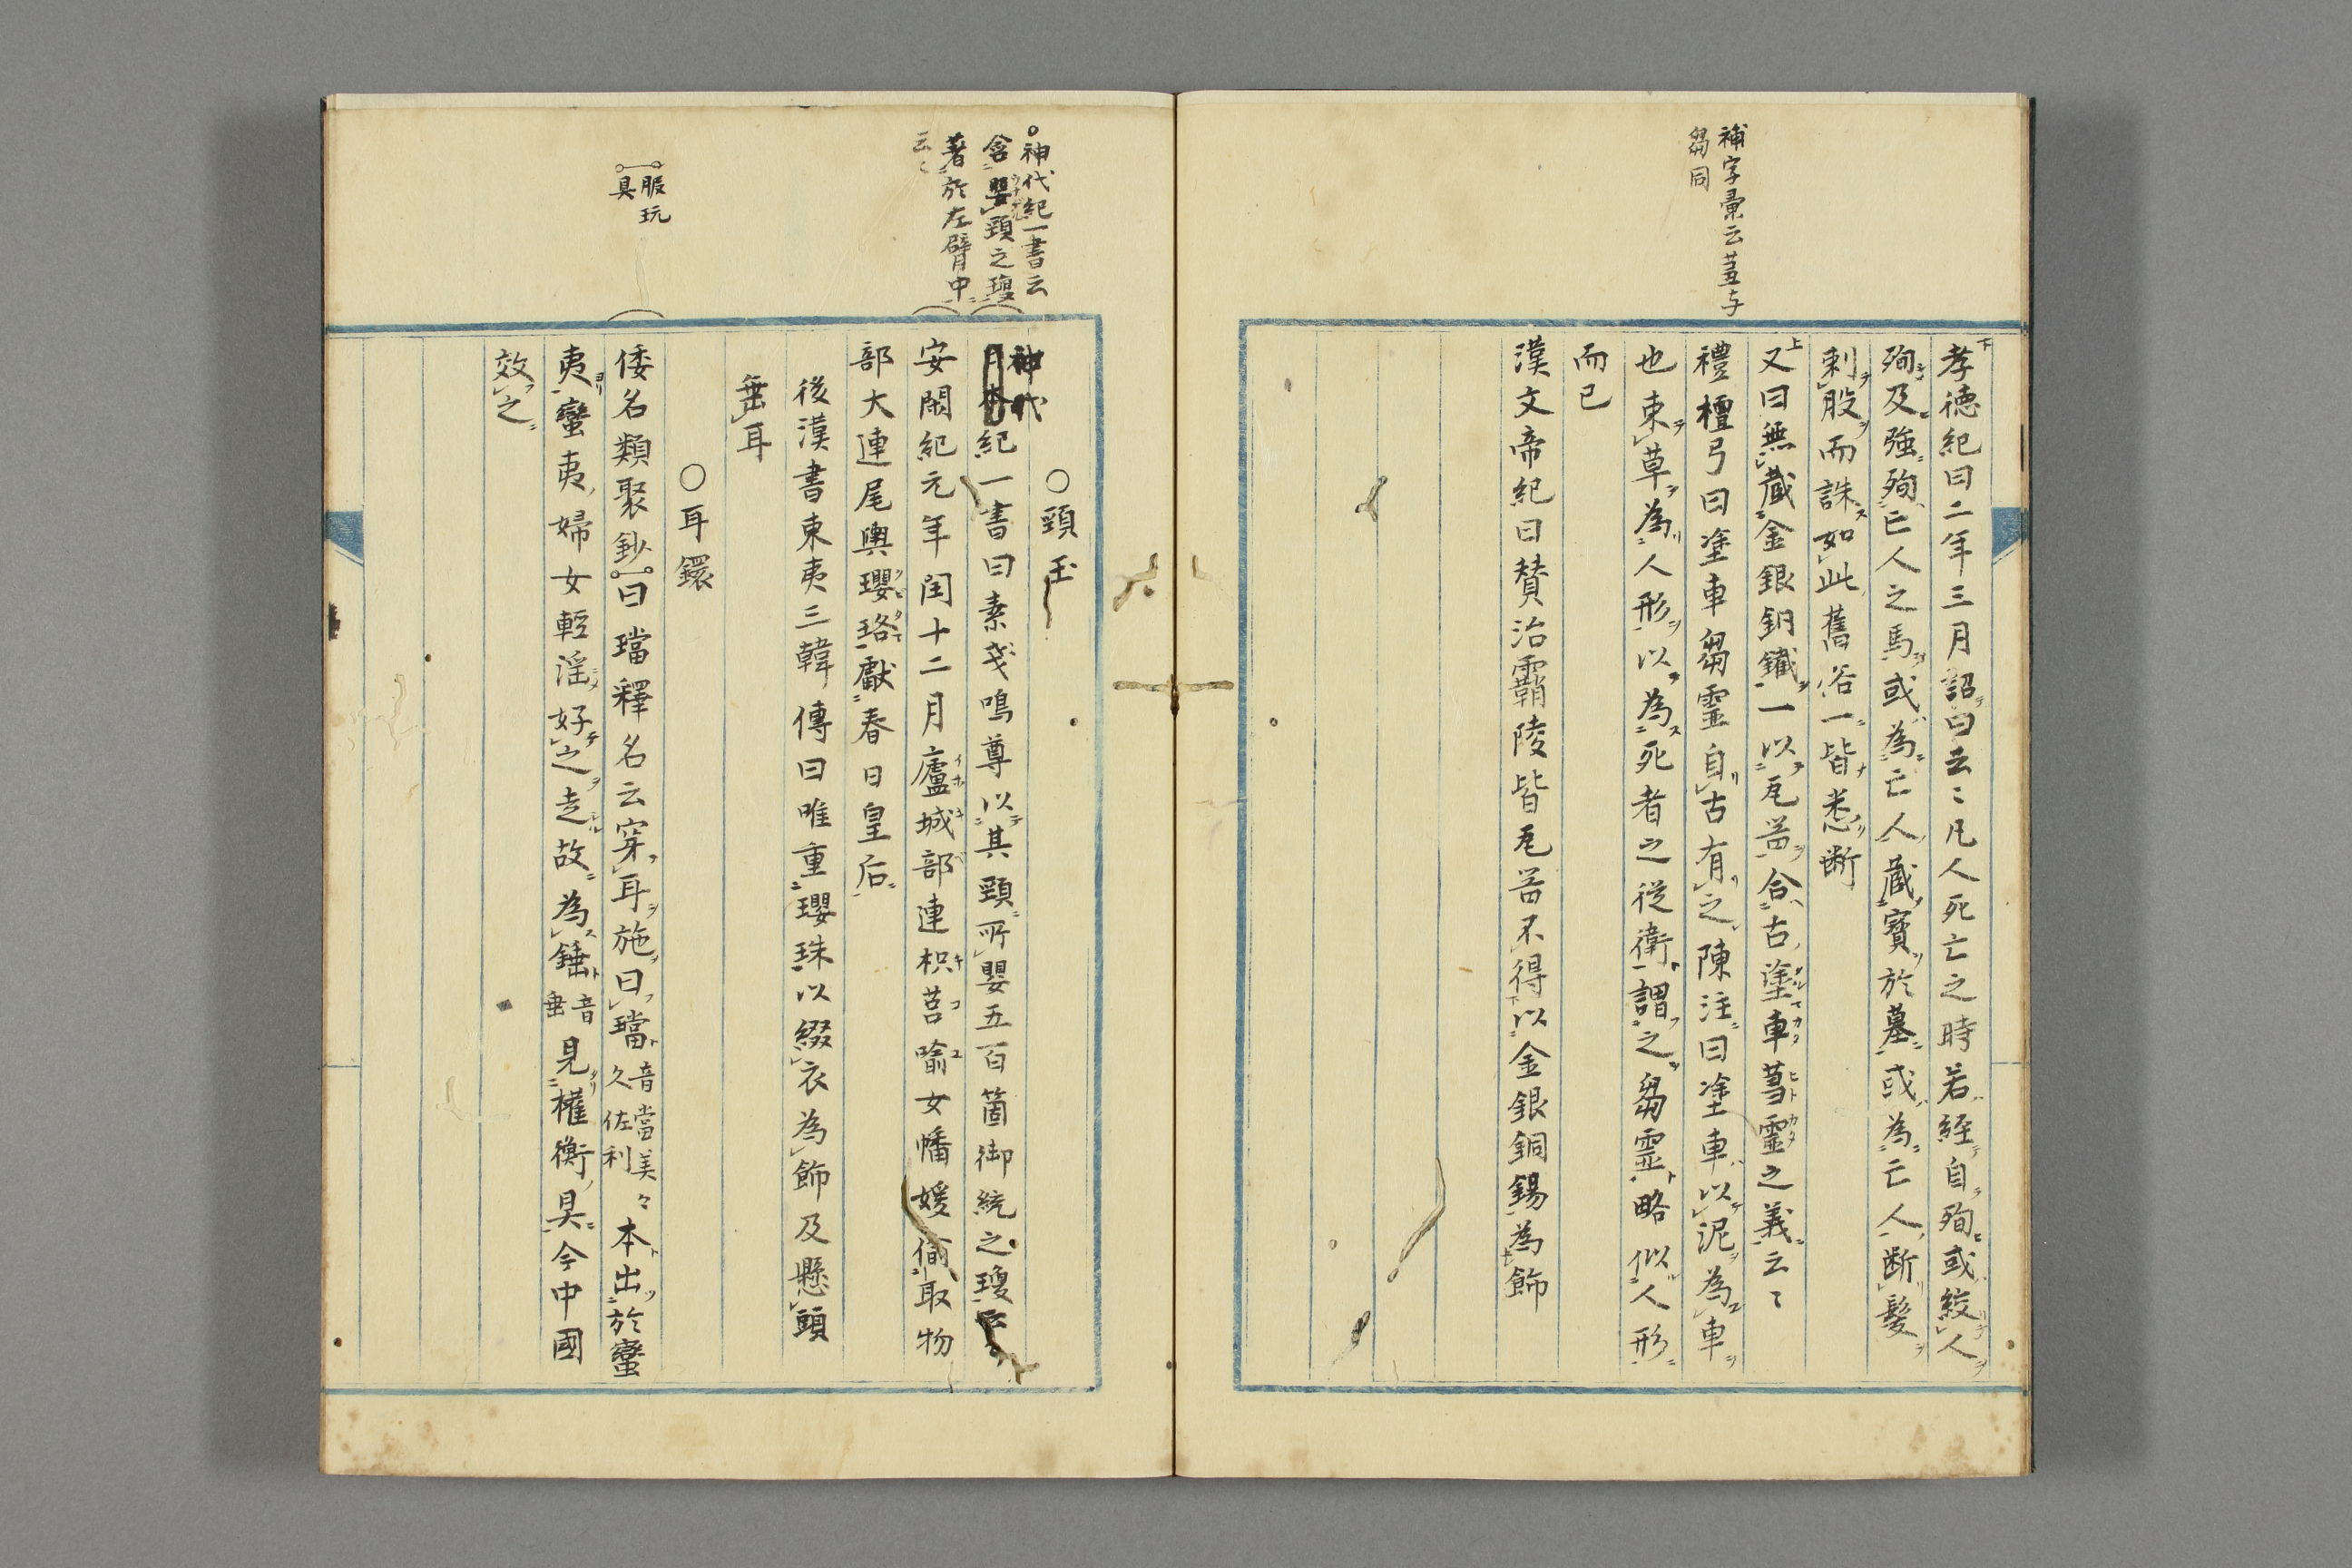 補字彙云蒭与
芻同
孝徳紀曰二年三月詔曰云〻凡人死亡之時若経自殉或絞人
殉及強殉亡人之馬或為亡人蔵寳於墓或為亡人断髮
刺股而誅如此舊俗一皆悉断
又曰無蔵金銀銅鐵一以瓦器合古塗車蒭靈之義云〻
禮檀弓曰塗車芻霊自古有之陳注曰塗車以泥為車
也束草為人形以為死者之従衛謂之芻霊略似人形
而已
漢文帝紀曰賛治霸陵皆瓦器不得以金銀銅錫為飾
○神代紀一書云
含嬰頸之瓊
著於左臂中
云〻
服玩
具
○頸玉
神代
紀一書曰素戔嗚尊以其頸所嬰五百箇御統之瓊云〻
安閑紀元年閏十二月廬城部連枳莒喩女幡媛偸取物
部大連尾輿瓔珞獻春日皇后
後漢書東夷三韓傳曰唯重瓔珠以綴衣為飾及懸頸
垂耳
○耳鐶
倭名類聚鈔曰璫釋名云穿耳施曰璫音當美〻久佐利本出於蠻
夷蠻夷婦女輕淫好之走故為錘音垂見權衡具今中國
效之